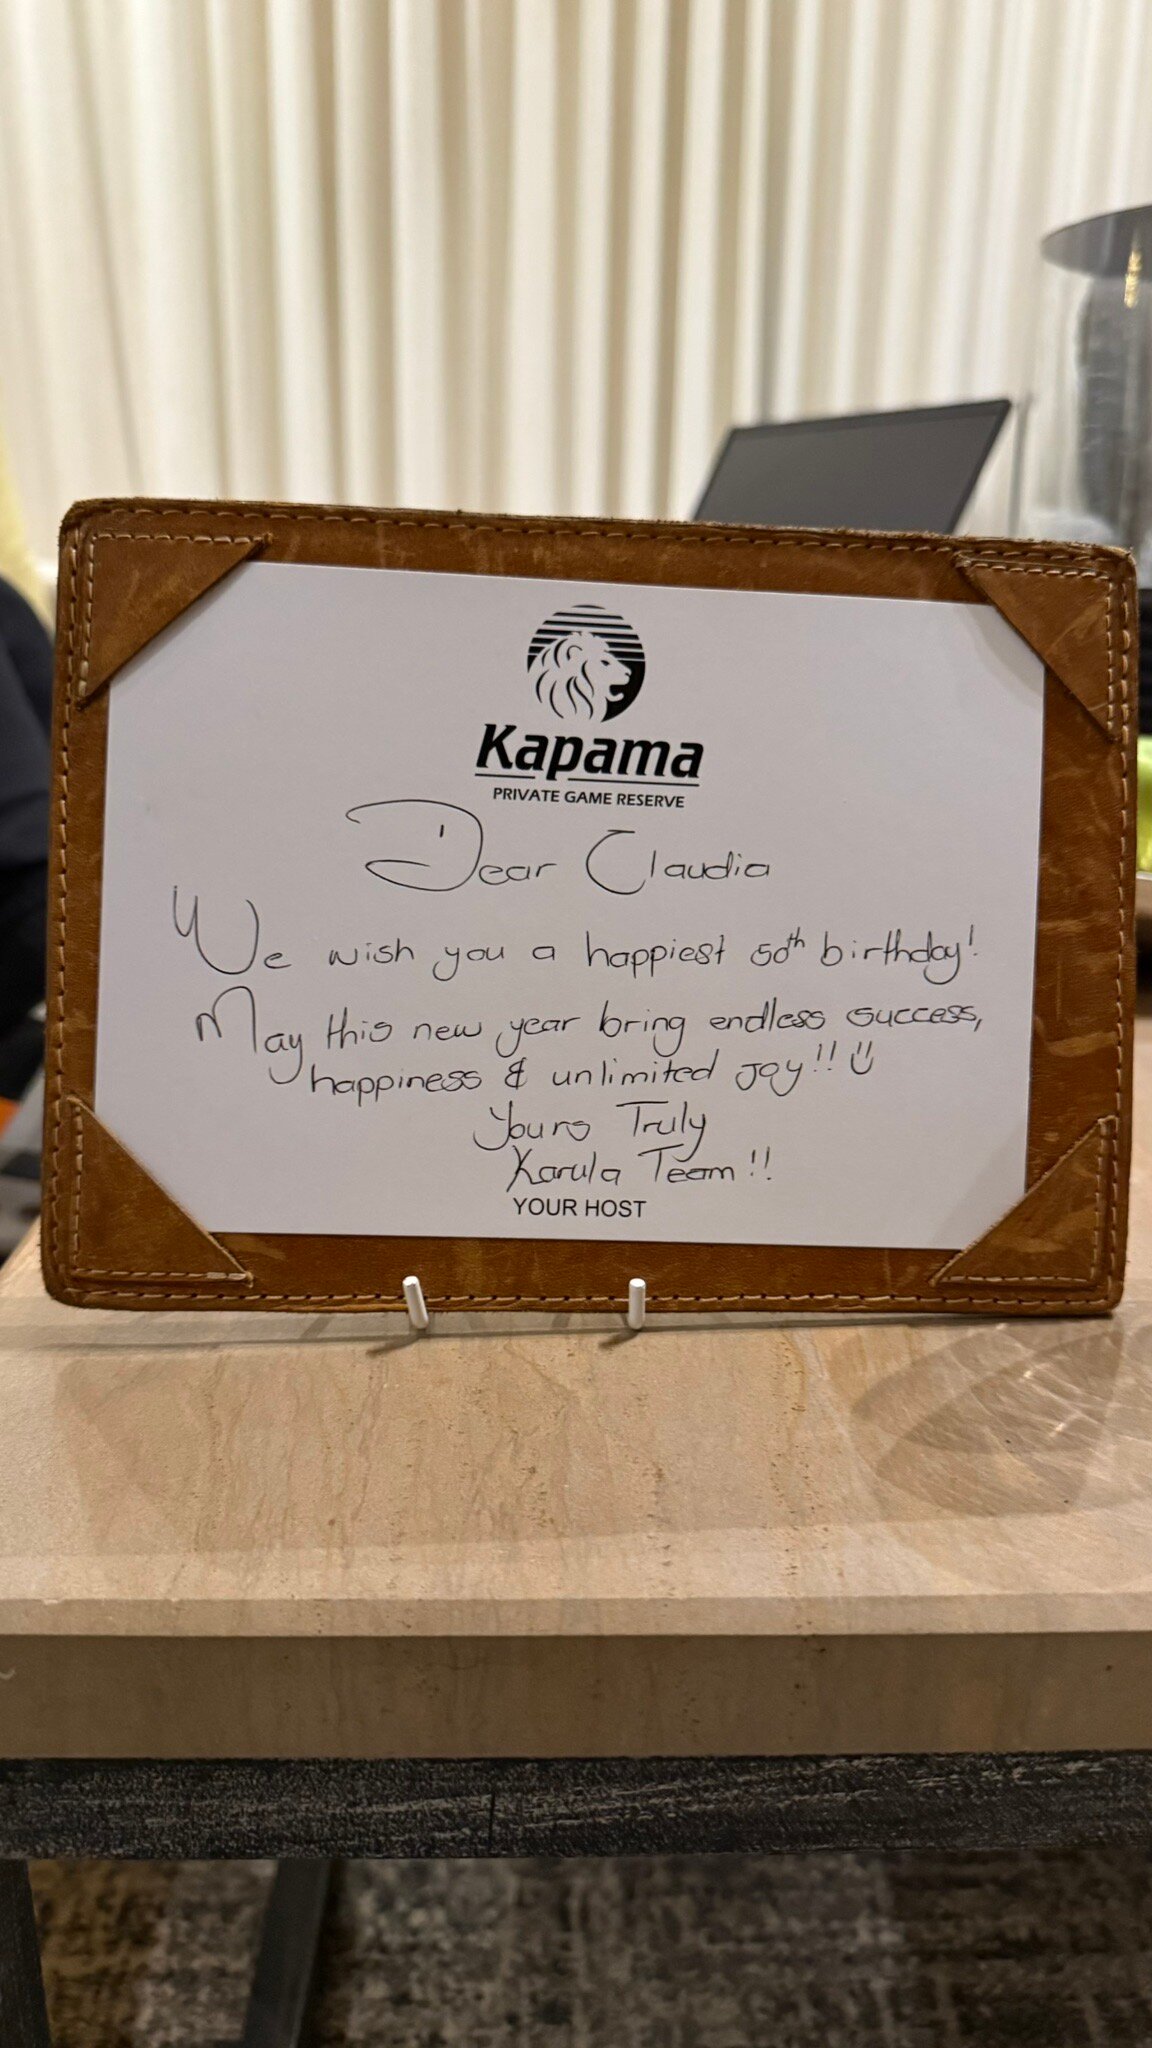 Kapama
PRIVATE GAME RESERVE
Dear Claudia
We wish you a happiest 50th birthday!
May this new year bring endless success,
happiness & unlimited joy!! ツ
Yours Truly
Karula Team!!
YOUR HOST